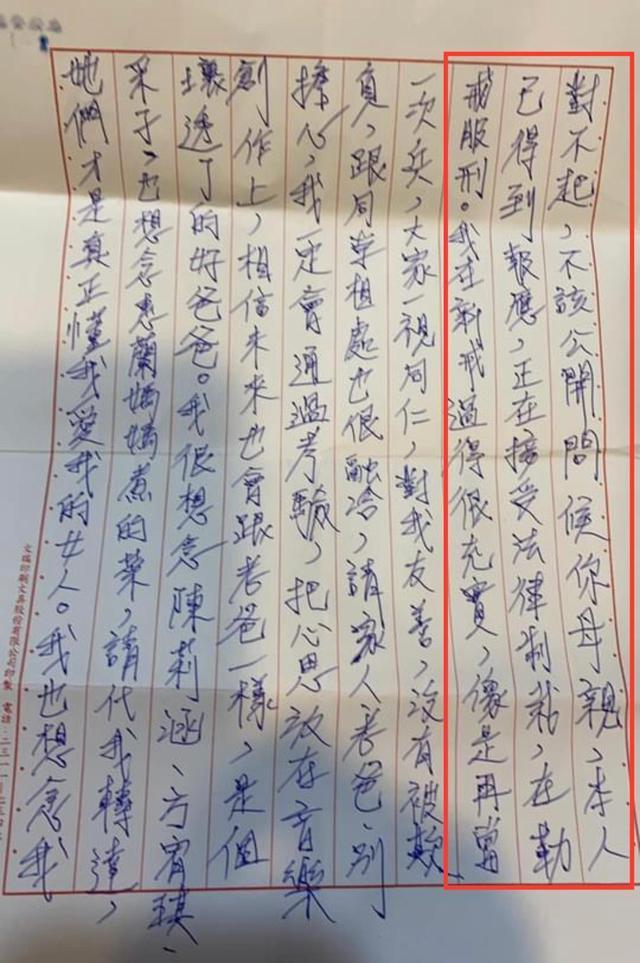 對不起，不該公開問候你母親，本人
已得到報應，正在接受法律制裁，在勒
戒服刑。我在新戒過得很充實，像是再當
一次兵，大家一視同仁，對我友善，沒有被欺
負，跟同學相處也很融洽，請家人老爸、別
擔心，我一定會通過考驗，把心思放在音樂
創作上，相信未來也會跟老爸一樣，是個
壞透了的好爸爸。我很想念陳莉涵、方宥琪、
采子，也想念惠蘭媽媽煮的菜，請代我轉達，
她們才是真正懂我愛我的女人。我也想念我
文瑞印刷文具股份有限公司印製 電話：二三一一